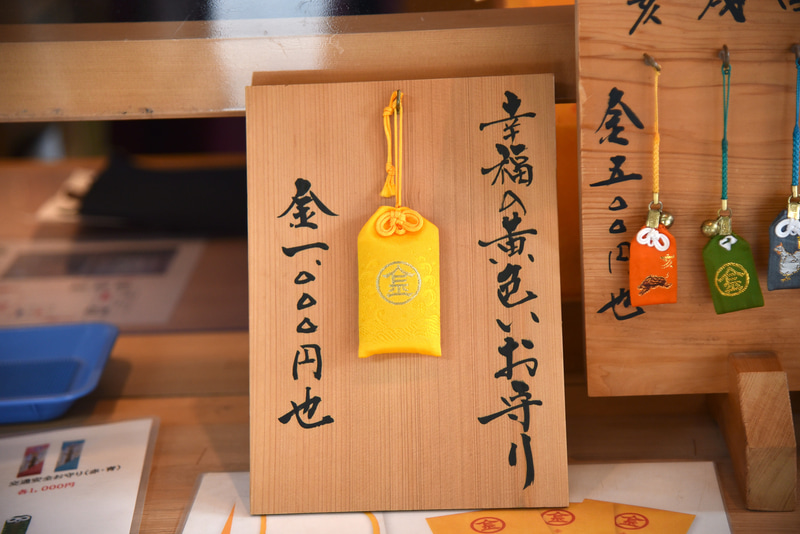 幸福の黄色いお守り
金一、〇〇〇円也
金
金五〇〇円也
亥
金
交通安全お守り(赤・青)
各1,000円
金
金
金